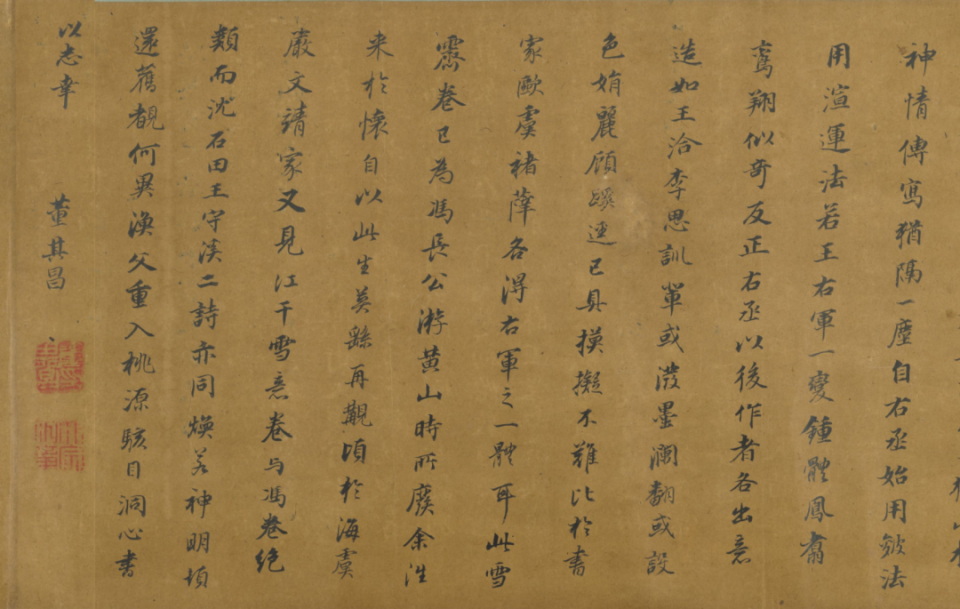 神情傳寫猶隔一塵自右丞始用皴法
用渲運法若王右軍一變鍾體鳳翥
鸞翔似奇反正右丞以後作者各出意
造如王洽李思訓輩或潑墨瀾翻或設
色娟麗顧蹊逕已具摸擬不難比於書
家歐虞褚薛各得右軍之一體耳此雪
霽卷已為馮長公游黃山時所廢余往
来於懷自以此生莫繇再觀頃於海虞
嚴文靖家又見江干雪意卷与馮卷絶
類而沈石田王守溪二詩亦同煥若神明頓
還舊觀何異漁父重入桃源駭目洞心書
以志幸
董其昌